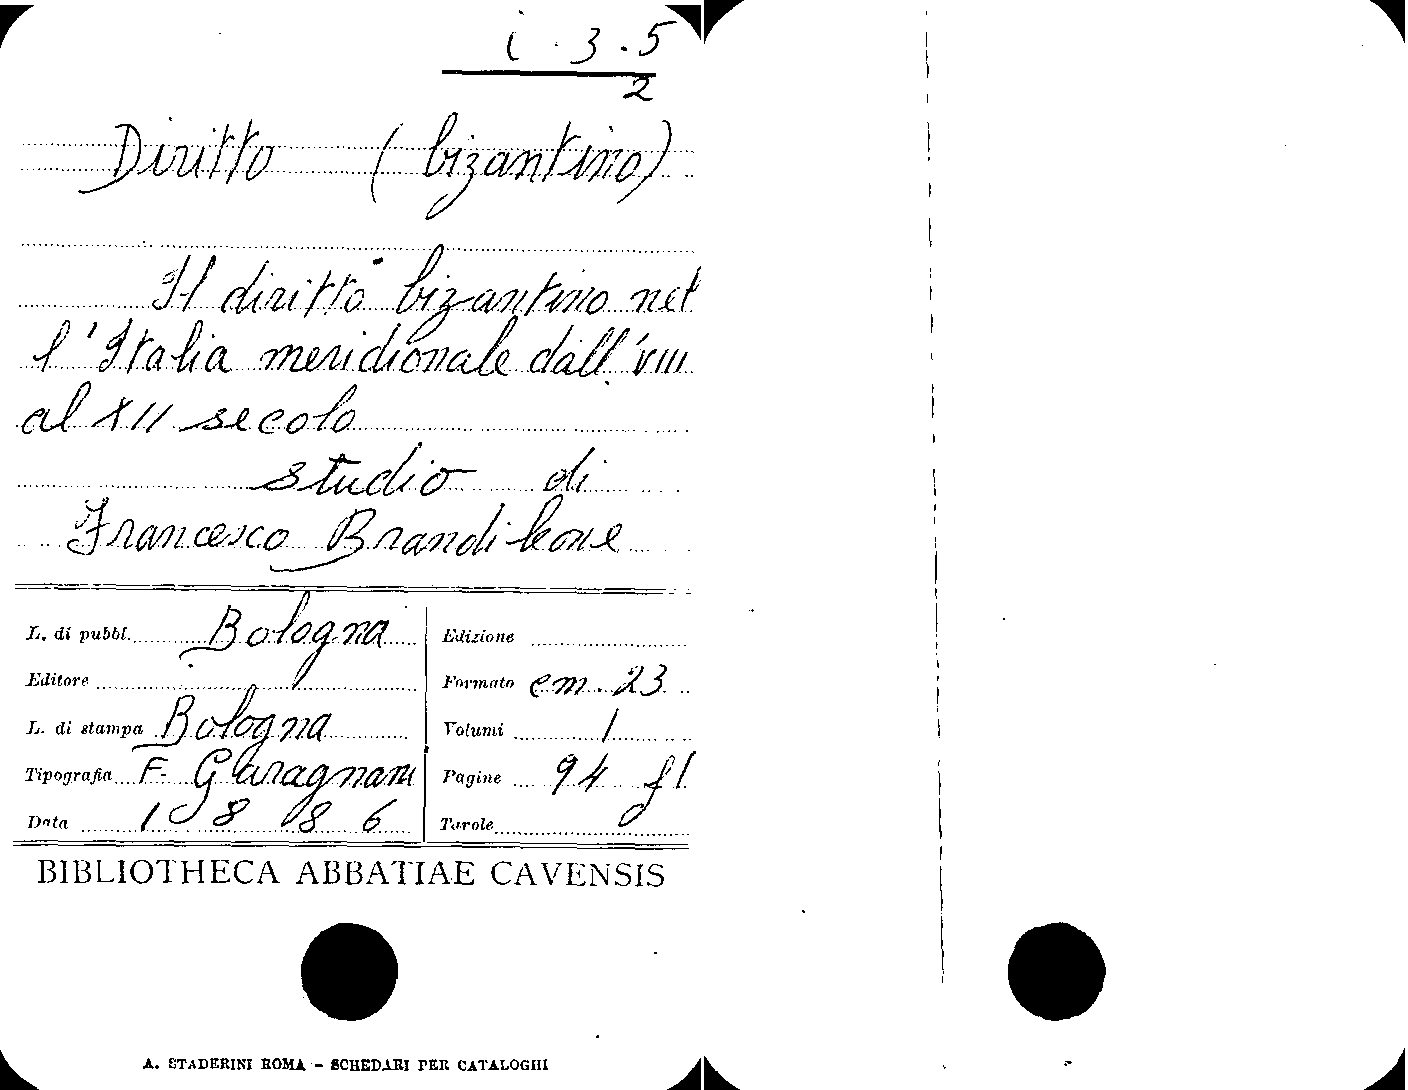 i . 3 . 5
2
Diritto (bizantino)
Il diritto bizantino nel
l'Italia meridionale dall'VIII
al XII secolo
studio di
Francesco Brandileone
L. di pubbl. Bologna
Editore
L. di stampa Bologna
Tipografia F. Garagnani
Data 1886
Edizione
Formato cm. 23
Volumi 1
Pagine 94 fl
Tavole
BIBLIOTHECA ABBATIAE CAVENSIS
A. STADERINI ROMA - SCHEDARI PER CATALOGHI